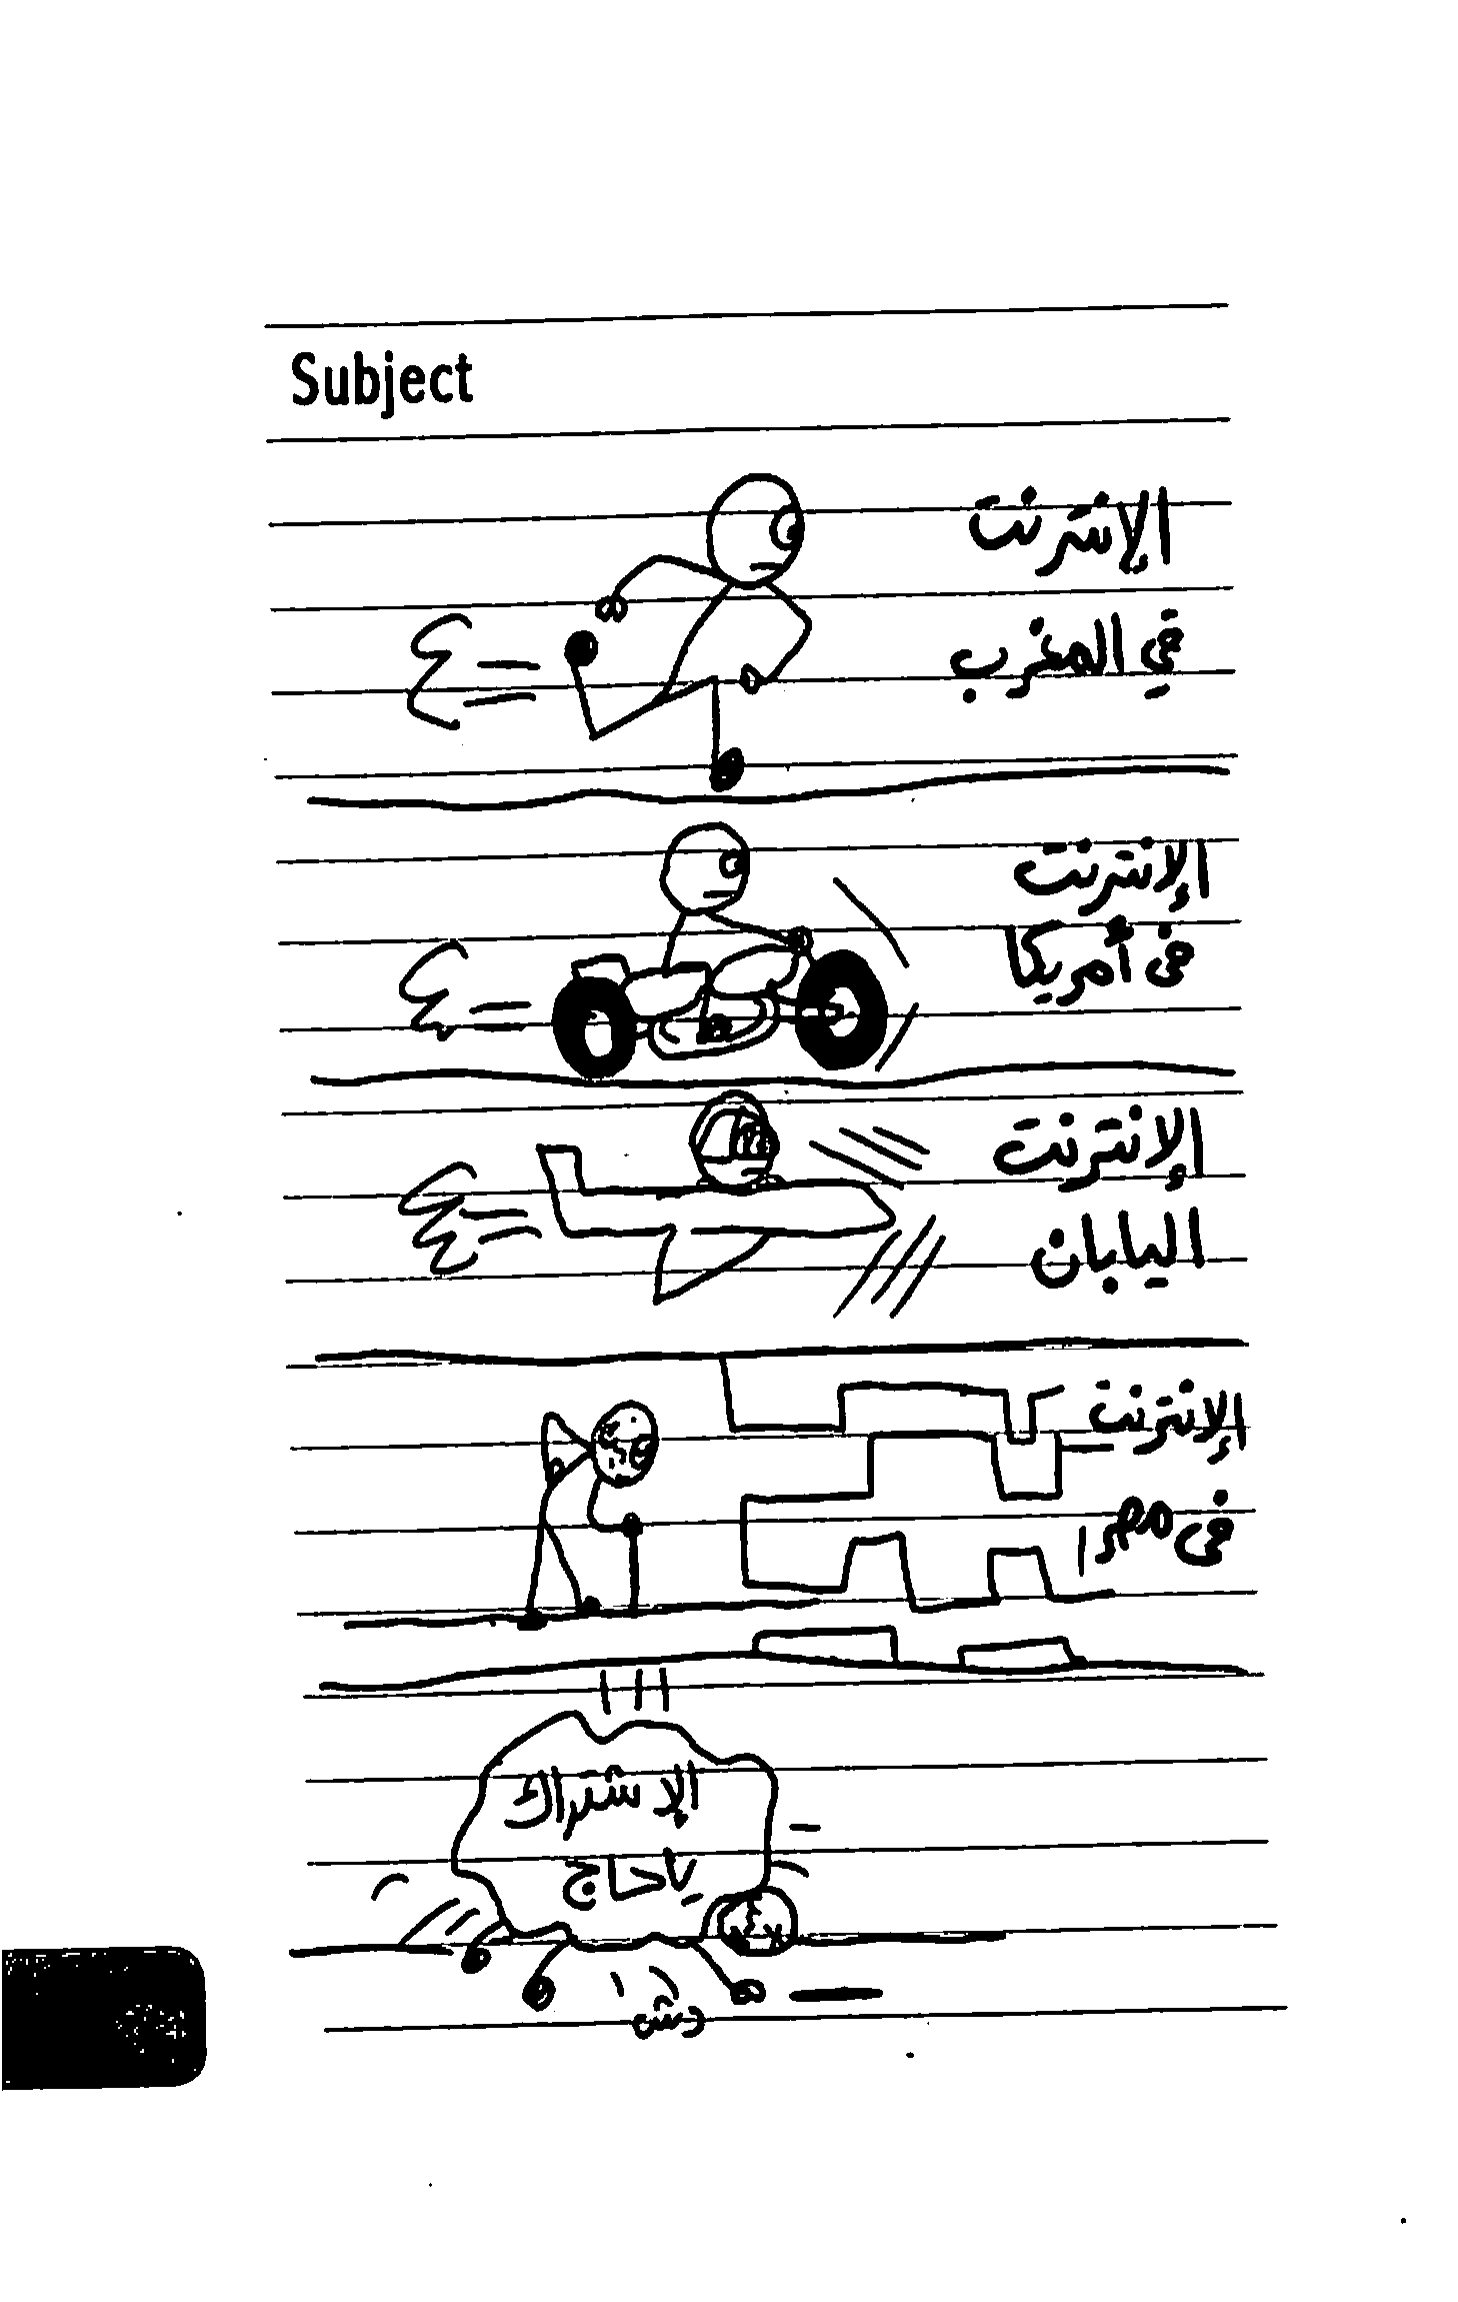 Subject
الإنترنت
في المغرب
الإنترنت
فى أمريكا
الإنترنت
اليابان
الإنترنت
فى
الإشتراك
ياحاج